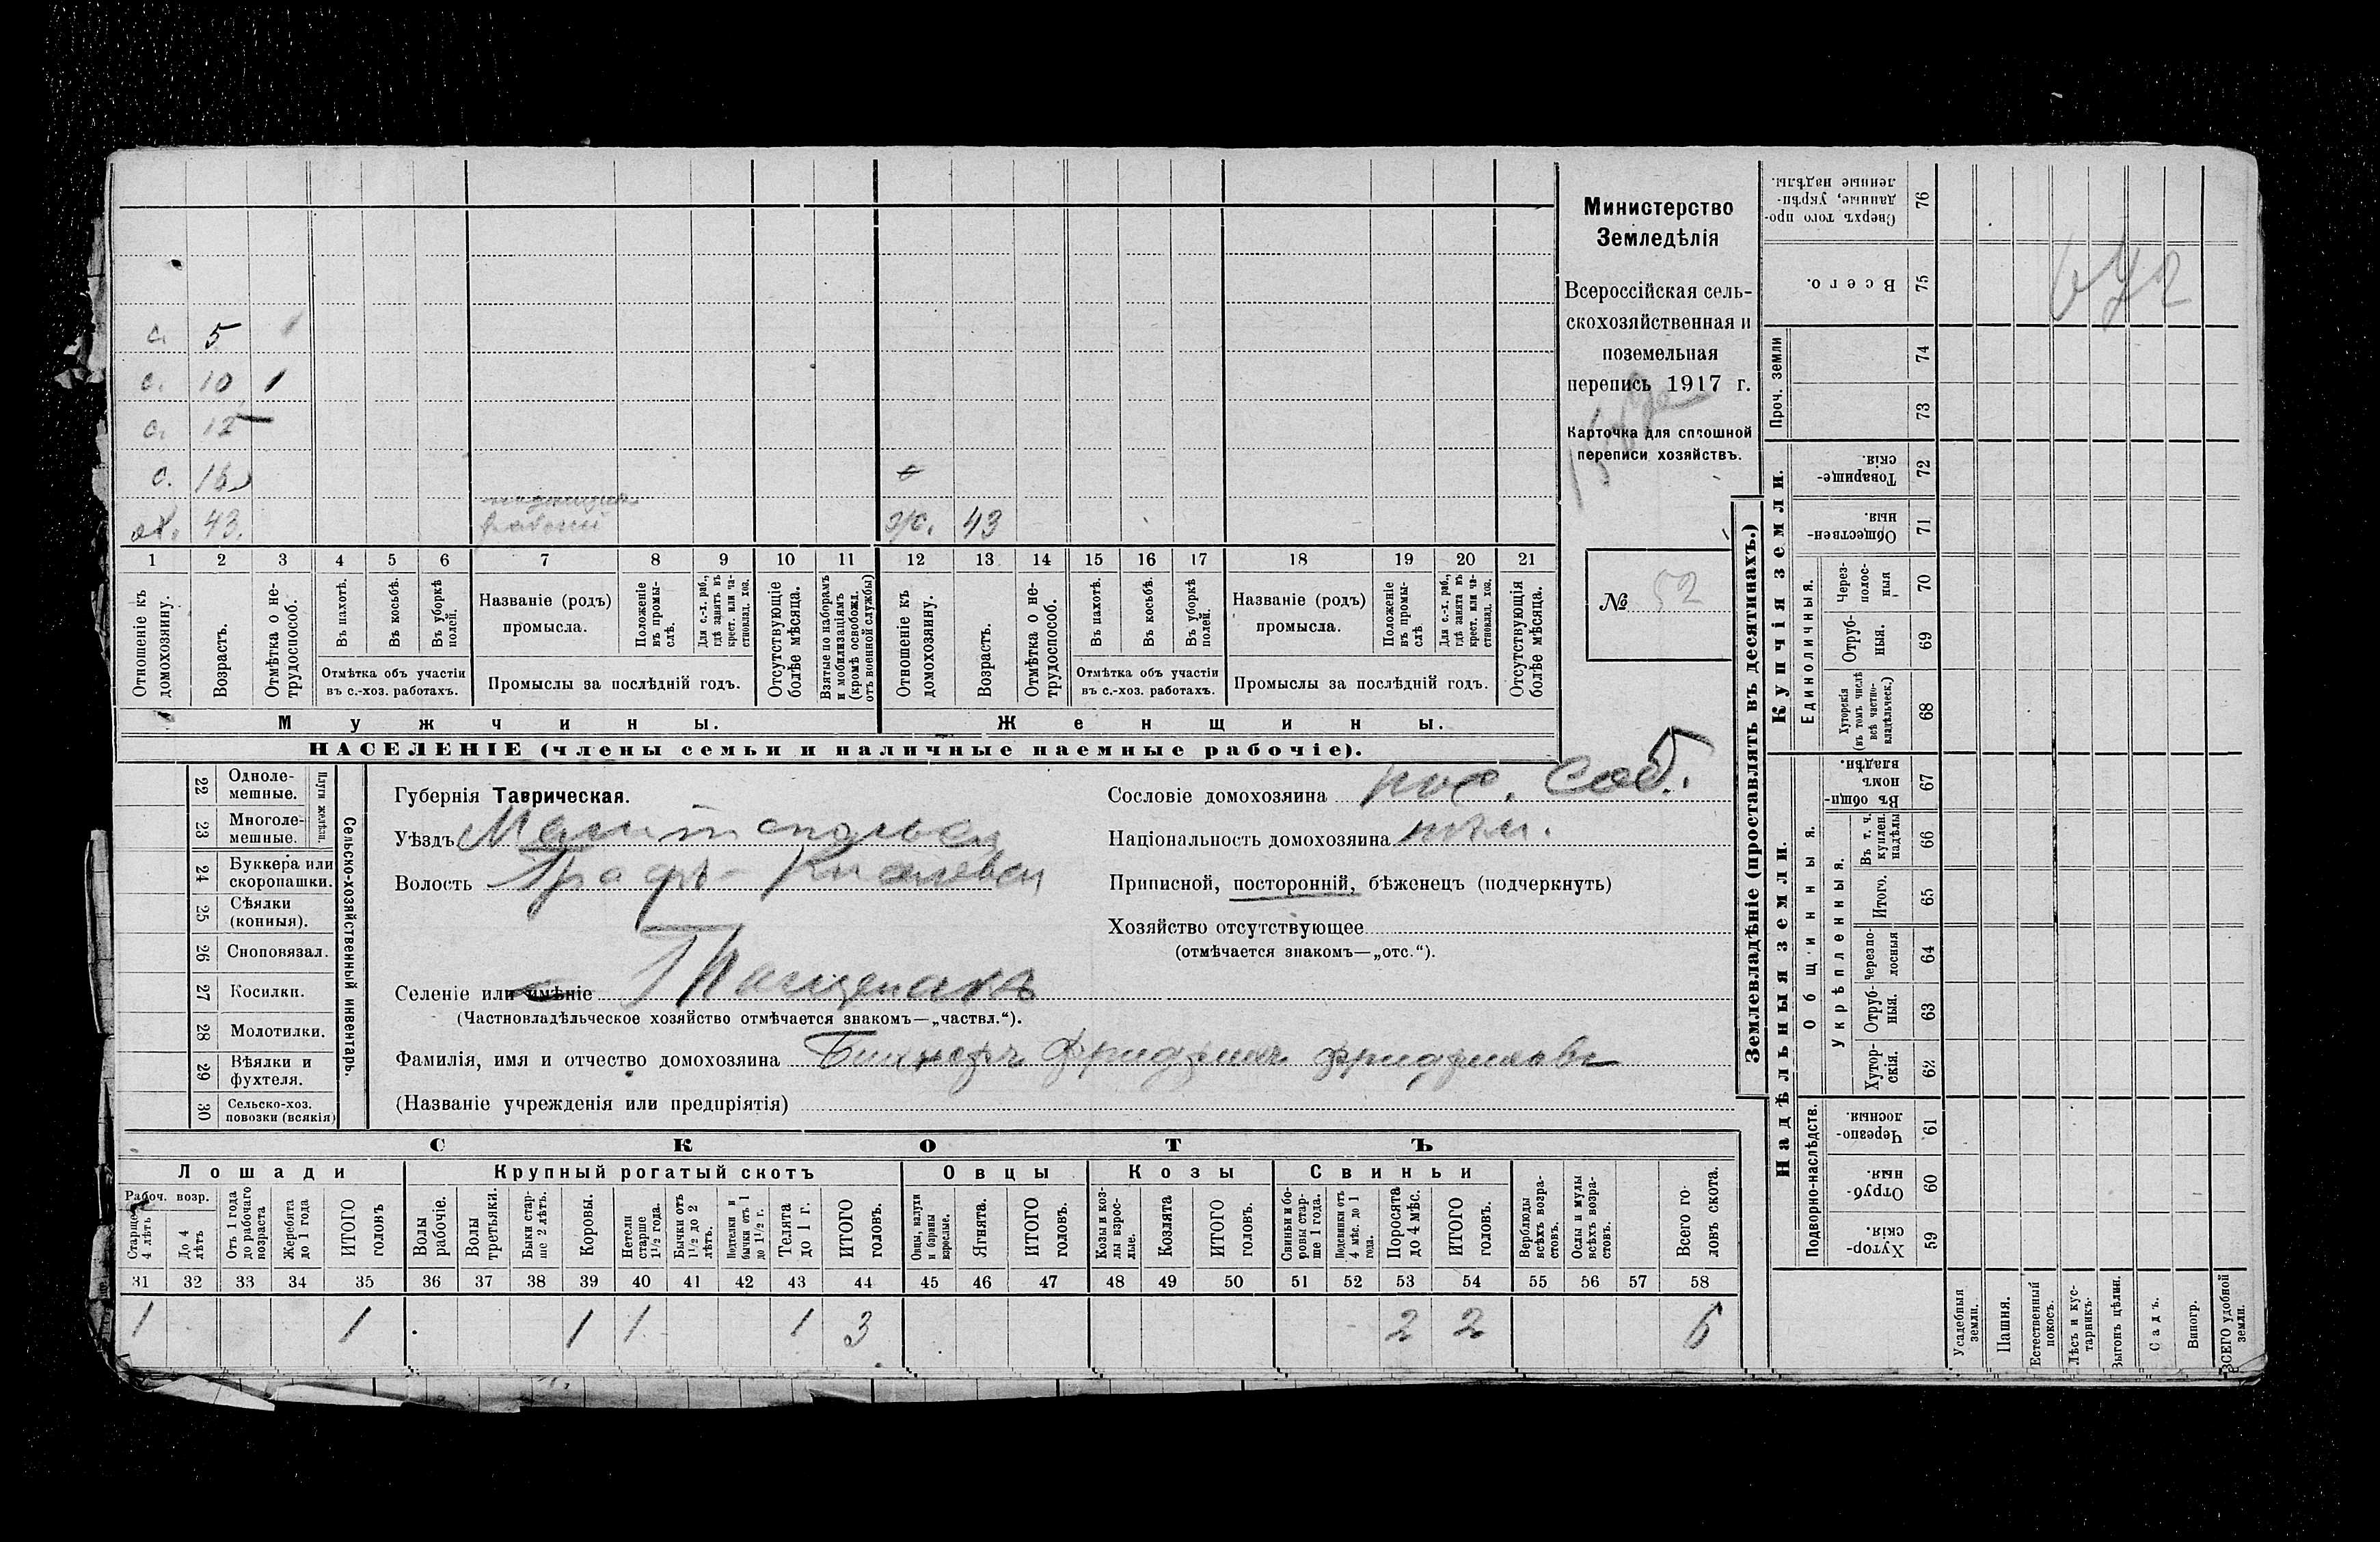 с. 5
с. 10
с. 12
с.
ох. 43.
рабочій
ж. 43
1 2 3 4 5 6 7 8 9 10 11 12 13 14 15 16 17 18 19 20 21
Отношеніе къ домохозяину.
Возрастъ.
Отмѣтка о не-трудоспособ.
Въ пахотѣ.
Въ косьбѣ.
Въ уборкѣ полей.
Отмѣтка объ участіи
въ с.-хоз. работахъ.
Названіе (родъ)
промысла.
Положеніе въ промы-слѣ.
Для с.-х. раб., гдѣ занятъ въ крест. или ча-стновлад. хоз.
Промыслы за послѣдній годъ.
Отсутствующіе болѣе мѣсяца.
Взятые по наборамъ и мобилизаціямъ (кромѣ освобожд. отъ военной службы)
Отношеніе къ домохозяину.
Возрастъ.
Отмѣтка о не-трудоспособ.
Въ пахотѣ.
Въ косьбѣ.
Въ уборкѣ полей.
Отмѣтка объ участіи
въ с.-хоз. работахъ.
Названіе (родъ)
промысла.
Положеніе въ промы-слѣ
Для с.-х. раб., гдѣ занята въ крест. или ча-стновлад. хоз.
Промыслы за послѣдній годъ.
Отсутствующія болѣе мѣсяца.
Мужчины.
Женщины.
НАСЕЛЕНІЕ (члены семьи и наличные наемные рабочіе).
Министерство
Земледѣлія
Всероссійская сель-
скохозяйственная и
поземельная
перепись 1917 г.
Карточка для сплошной
переписи хозяйствъ.
№ 52
Сельско-хозяйственный инвентарь.
Плуги желѣзн.
22 Одноле-мешные.
23 Многоле-мешные.
24 Буккера или скоропашки.
25 Сѣялки (конныя).
26 Сноповязал.
27 Косилки.
28 Молотилки.
29 Вѣялки и фухтеля.
30 Сельско-хоз. повозки (всякія)
Губернія Таврическая.
Уѣздъ Мелитопольск
Волость Графъ-
Селеніе или имѣніе
(Частновладѣльческое хозяйство отмѣчается знакомъ—„частвл.“).
Фамилія, имя и отчество домохозяина
(Названіе учрежденія или предпріятія)
Сословіе домохозяина пос. соб.
Національность домохозяина нѣм.
Приписной, посторонній, бѣженецъ (подчеркнуть)
Хозяйство отсутствующее
(отмѣчается знакомъ—„отс.“).
СКОТЪ
Лошади
Крупный рогатый скотъ
Овцы
Козы
Свиньи
Рабоч. возр.
Старше 4 лѣтъ
До 4 лѣтъ
Отъ 1 года до рабочаго возраста
Жеребята до 1 года
ИТОГО головъ
Волы рабочіе.
Волы третьяки.
Быки стар-ше 2 лѣтъ.
Коровы.
Нетели старше 1 1/2 года.
Бычки отъ 1 1/2 до 2 лѣтъ.
Подтелки и бычки отъ 1 до 1 1/2 г.
Телята до 1 г.
ИТОГО головъ.
Овцы, валухи и бараны взрослые.
Ягнята.
ИТОГО головъ.
Козы и коз-лы взрос-лые.
Козлята
ИТОГО головъ.
Свиньи и бо-ровы стар-ше 1 года.
Подсвинки отъ 4 мѣс. до 1 года.
Поросята до 4 мѣс.
ИТОГО головъ.
Верблюды всѣхъ возра-стовъ.
Ослы и мулы всѣхъ возра-стовъ.
Всего го-ловъ скота.
31 32 33 34 35 36 37 38 39 40 41 42 43 44 45 46 47 48 49 50 51 52 53 54 55 56 57 58
1 1 1 1 1 3 2 2 6
Землевладѣніе (проставлять въ десятинахъ.)
Купчія земли.
Надѣльныя земли.
Проч. земли
Единоличныя.
Общинныя.
Укрѣпленныя.
Подворно-наслѣдств.
Сверхъ того про-данные, укрѣп-ленные надѣлы. 76
Всего. 75
74
73
Товарище-скія. 72
Обществен-ныя. 71
Через-полос-ныя 70
Отруб-ныя. 69
Хуторскія (въ томъ числѣ всѣ частно-владѣльческ.) 68
Въ общин-номъ владѣн. 67
Въ т. ч. куплен. надѣлы 66
Итого. 65
Черезпо-лосныя 64
Отруб-ныя. 63
Хутор-скія. 62
Черезпо-лосныя. 61
Отруб-ныя. 60
Хутор-скія. 59
Усадебныя земли.
Пашня.
Естественный покосъ.
Лѣсъ и кус-тарникъ.
Выгонъ цѣлин.
Садъ.
Виногр.
ВСЕГО удобной земли.